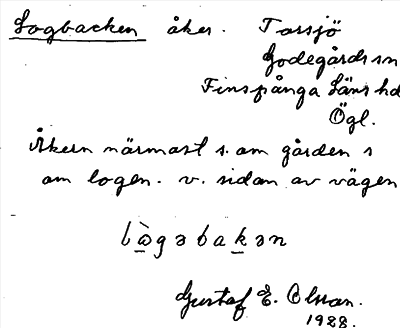 Logbacken åker. Torsjö
Godegårds sn
Finspånga läns hd
Ögl.
Åkern närmast s. om gården s
om logen. v. sidan av vägen
Gustaf E. Olsson.
1928.